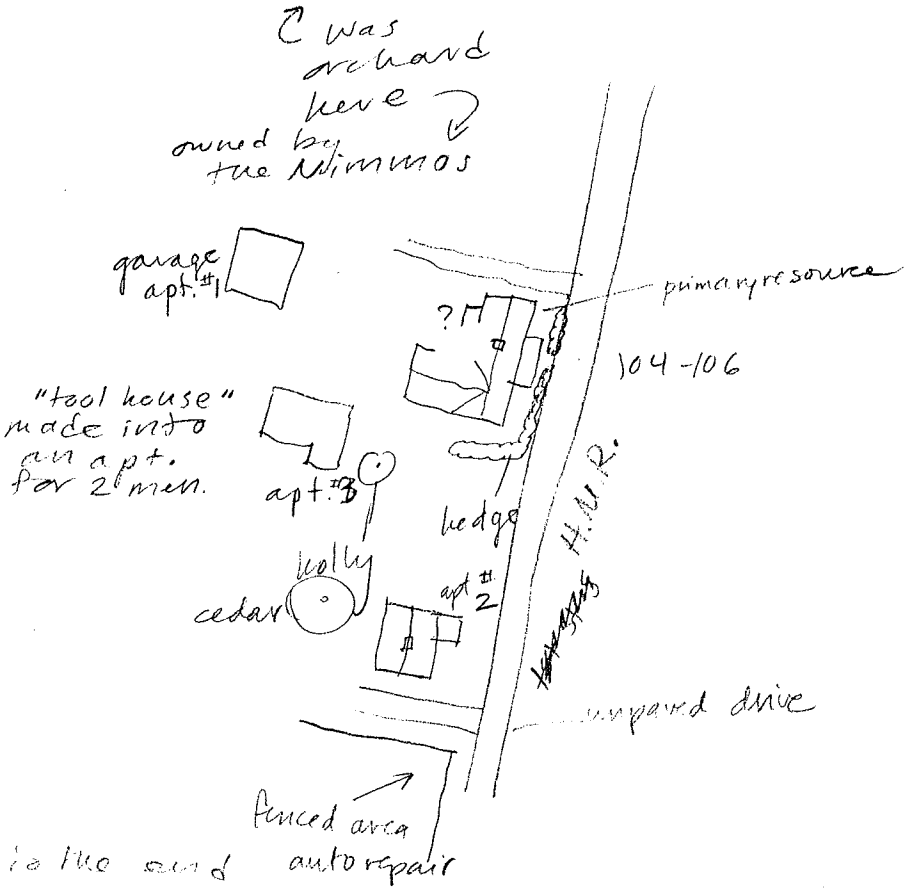 was
orchard
here
owned by
the Nimmos
garage
apt. #1
?
primary resource
104-106
"tool house"
made into
an apt.
for 2 men.
apt. #3
hedge
H.N.R.
holly
cedar
apt #
2
unpaved drive
fenced area
auto repair
to the